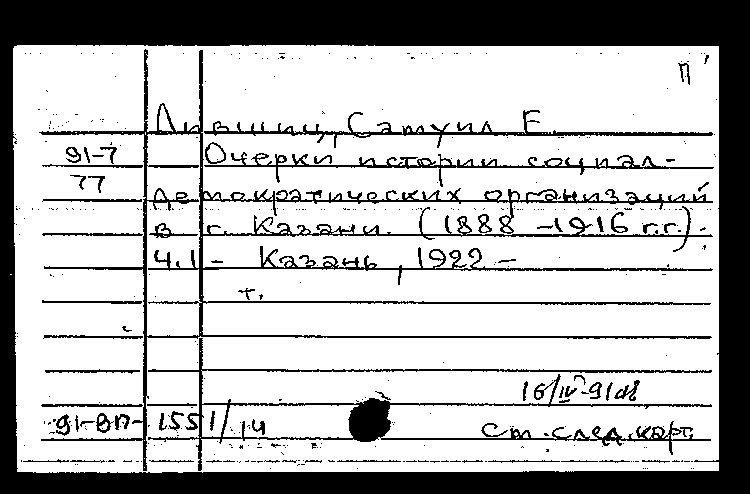 П
Лившиц, Самуил Е.
91-7 Очерки истории социал-
77 демократических организаций
в г. Казани. (1888 -1916 г.г.).
Ч.1 - Казань, 1922 -
т.
16/IV-91
91-ВП- 1551/14 См. след. карт.